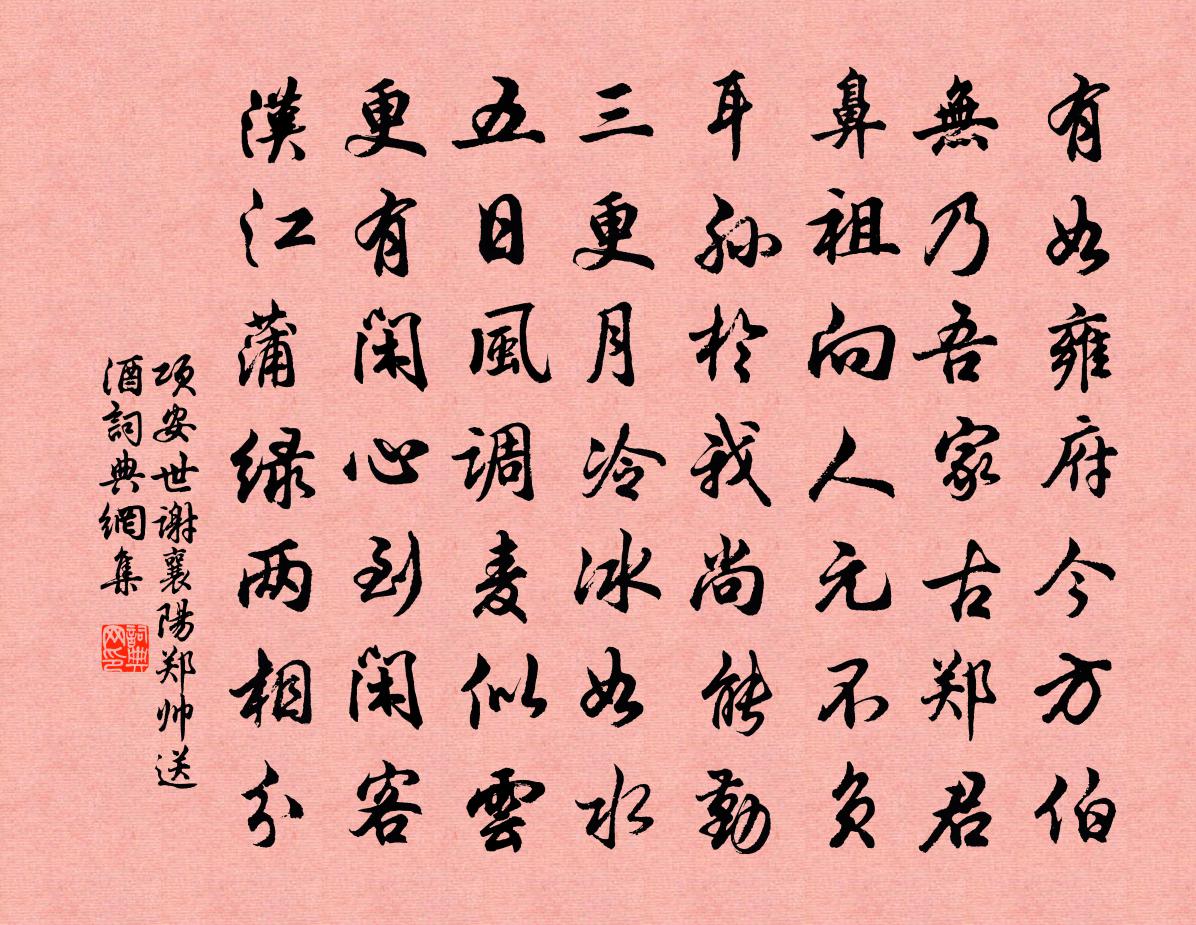 有如雍府今方伯
無乃吾家古郑君
鼻祖向人元不负
耳孙於我尚能勤
三更月冷冰如水
五日風调麦似雲
更有闲心到闲客
漢江蒲绿两相分
项安世谢襄陽郑帅送
酒詞典網集
詞典网印